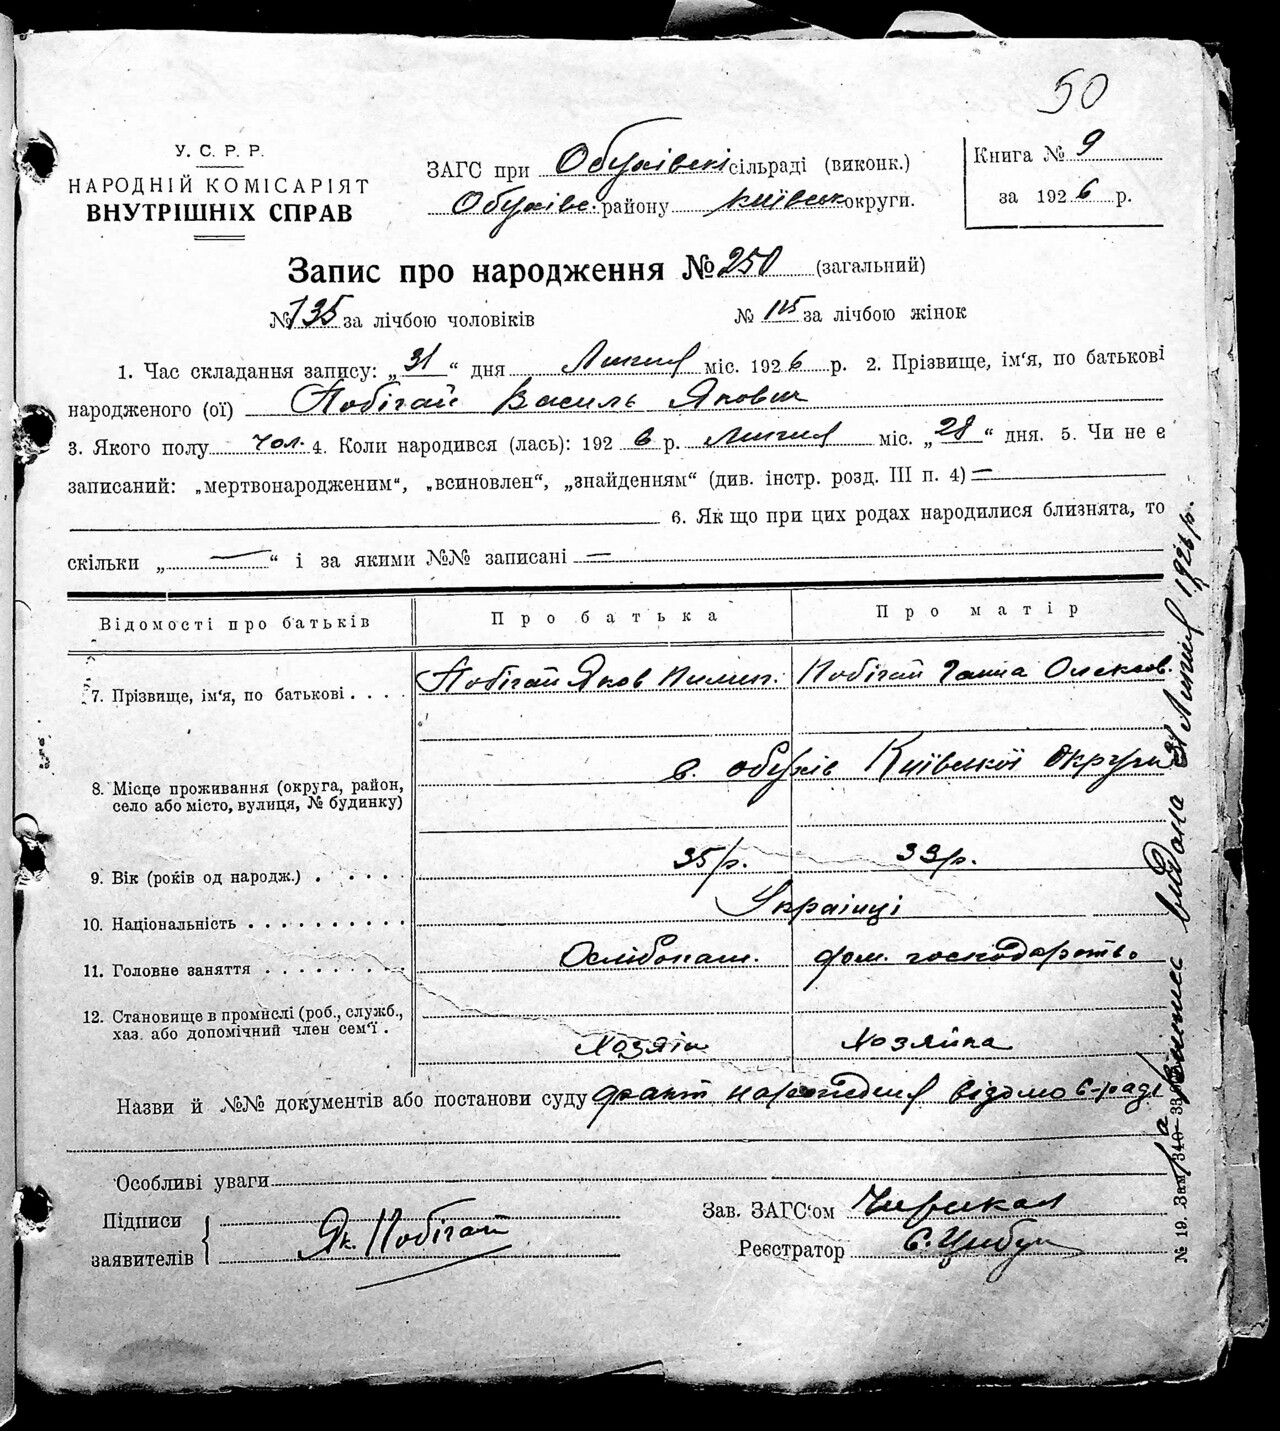 50
У. С. Р. Р.
НАРОДНІЙ КОМІСАРІЯТ
ВНУТРІШНІХ СПРАВ
ЗАГС при Обухівскі сільраді (виконк.)
Обухівс. району Київськ округи.
Книга № 9
за 1926 р.
Запис про народження № 250 (загальний)
№ 135 за лічбою чоловіків № 115 за лічбою жінок
1. Час складання запису: „31“ дня Липня міс. 1926 р. 2. Прізвище, ім‘я, по батькові
народженого (ої) Побігай Василь Якович
3. Якого полу чол. 4. Коли народився (лась): 1926 р. Липня міс. „28“ дня. 5. Чи не є
записаний: „мертвонародженим“, „всиновлен“, „знайденням“ (див. інстр. розд. III п. 4) =
6. Як що при цих родах народилися близнята, то
скільки „—“ і за якими №№ записані =
Відомості про батьків Про батька Про матір
7. Прізвище, ім‘я, по батькові . . . . Побігай Яков Пилип. Побігай Ганна Олексов.
8. Місце проживання (округа, район,
село або місто, вулиця, № будинку)
с. Обухів Київської округи
9. Вік (років од народж.) . . . . . 35 р. 33 р.
10. Національність . . . . . . . . . . Українці
11. Головне заняття . . . . . . . . Хлібопаш. дом. господарство
12. Становище в промислі (роб., служб.,
хаз. або допомічний член сем‘ї .
Хозяін Хозяйка
Назви й №№ документів або постанови суду факт народження відомо с-раді
Особливі уваги
Підписи
заявителів
Як. Побігай
Зав. ЗАГС‘ом
Реєстратор С. Цибул
№ 19. Зам. 340—33.
Випись видана 31 Липня 1926 р.